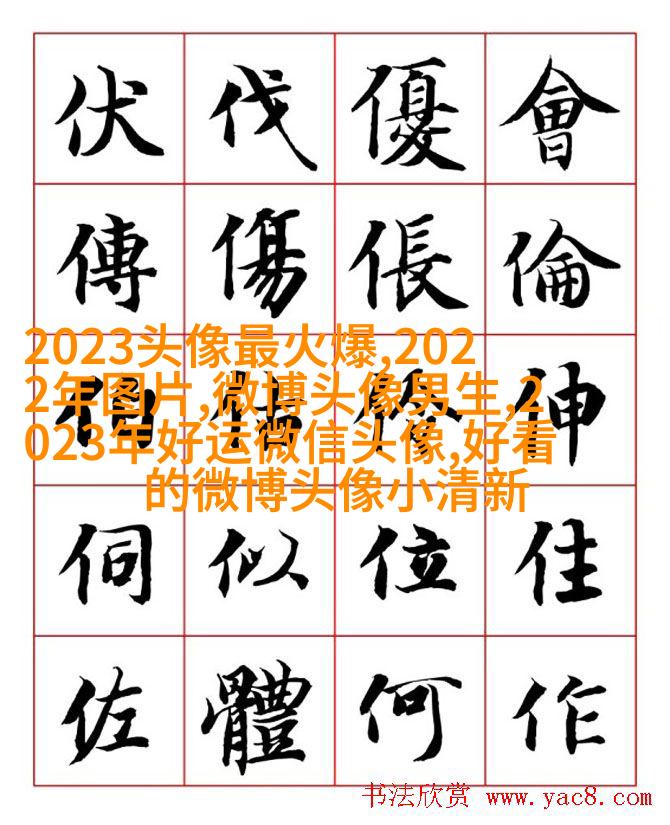 伏 伐 優 會
傳 傷 倀 倫
2023头像最火爆,202
2年图片,微博头像男生,2
023年好运微信头像,好看
的微博头像小清新
伸
伺 似 位 住
佐 體 何 作
书法欣赏 www.yac8.com